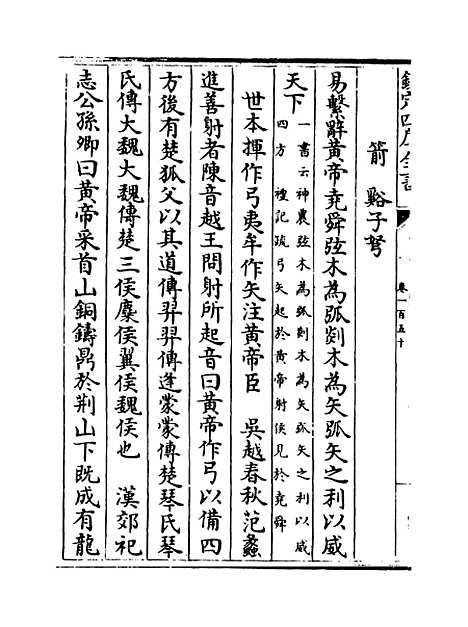 欽定四庫全書
卷一百五十
箭　谿子弩
易繫辭黃帝堯舜弦木為弧剡木為矢弧矢之利以威
天下一書云神農弦木為弧剡木為矢弧矢之利以威
四方　禮記疏弓矢起於黃帝射侯見於堯舜
世本揮作弓夷牟作矢注黃帝臣　吳越春秋范蠡
進善射者陳音越王問射所起音曰黃帝作弓以備四
方後有楚狐父以其道傳羿羿傳逢蒙蒙傳楚琴氏琴
氏傳大魏大魏傳楚三侯麋侯翼侯魏侯也　漢郊祀
志公孫卿曰黃帝采首山銅鑄鼎於荆山下既成有龍